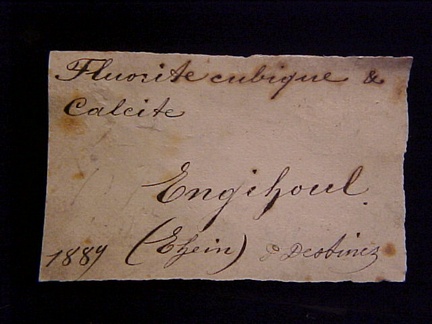 Fluorite cubique &
Calcite
Engihoul.
1889 (Ehein) Destinez